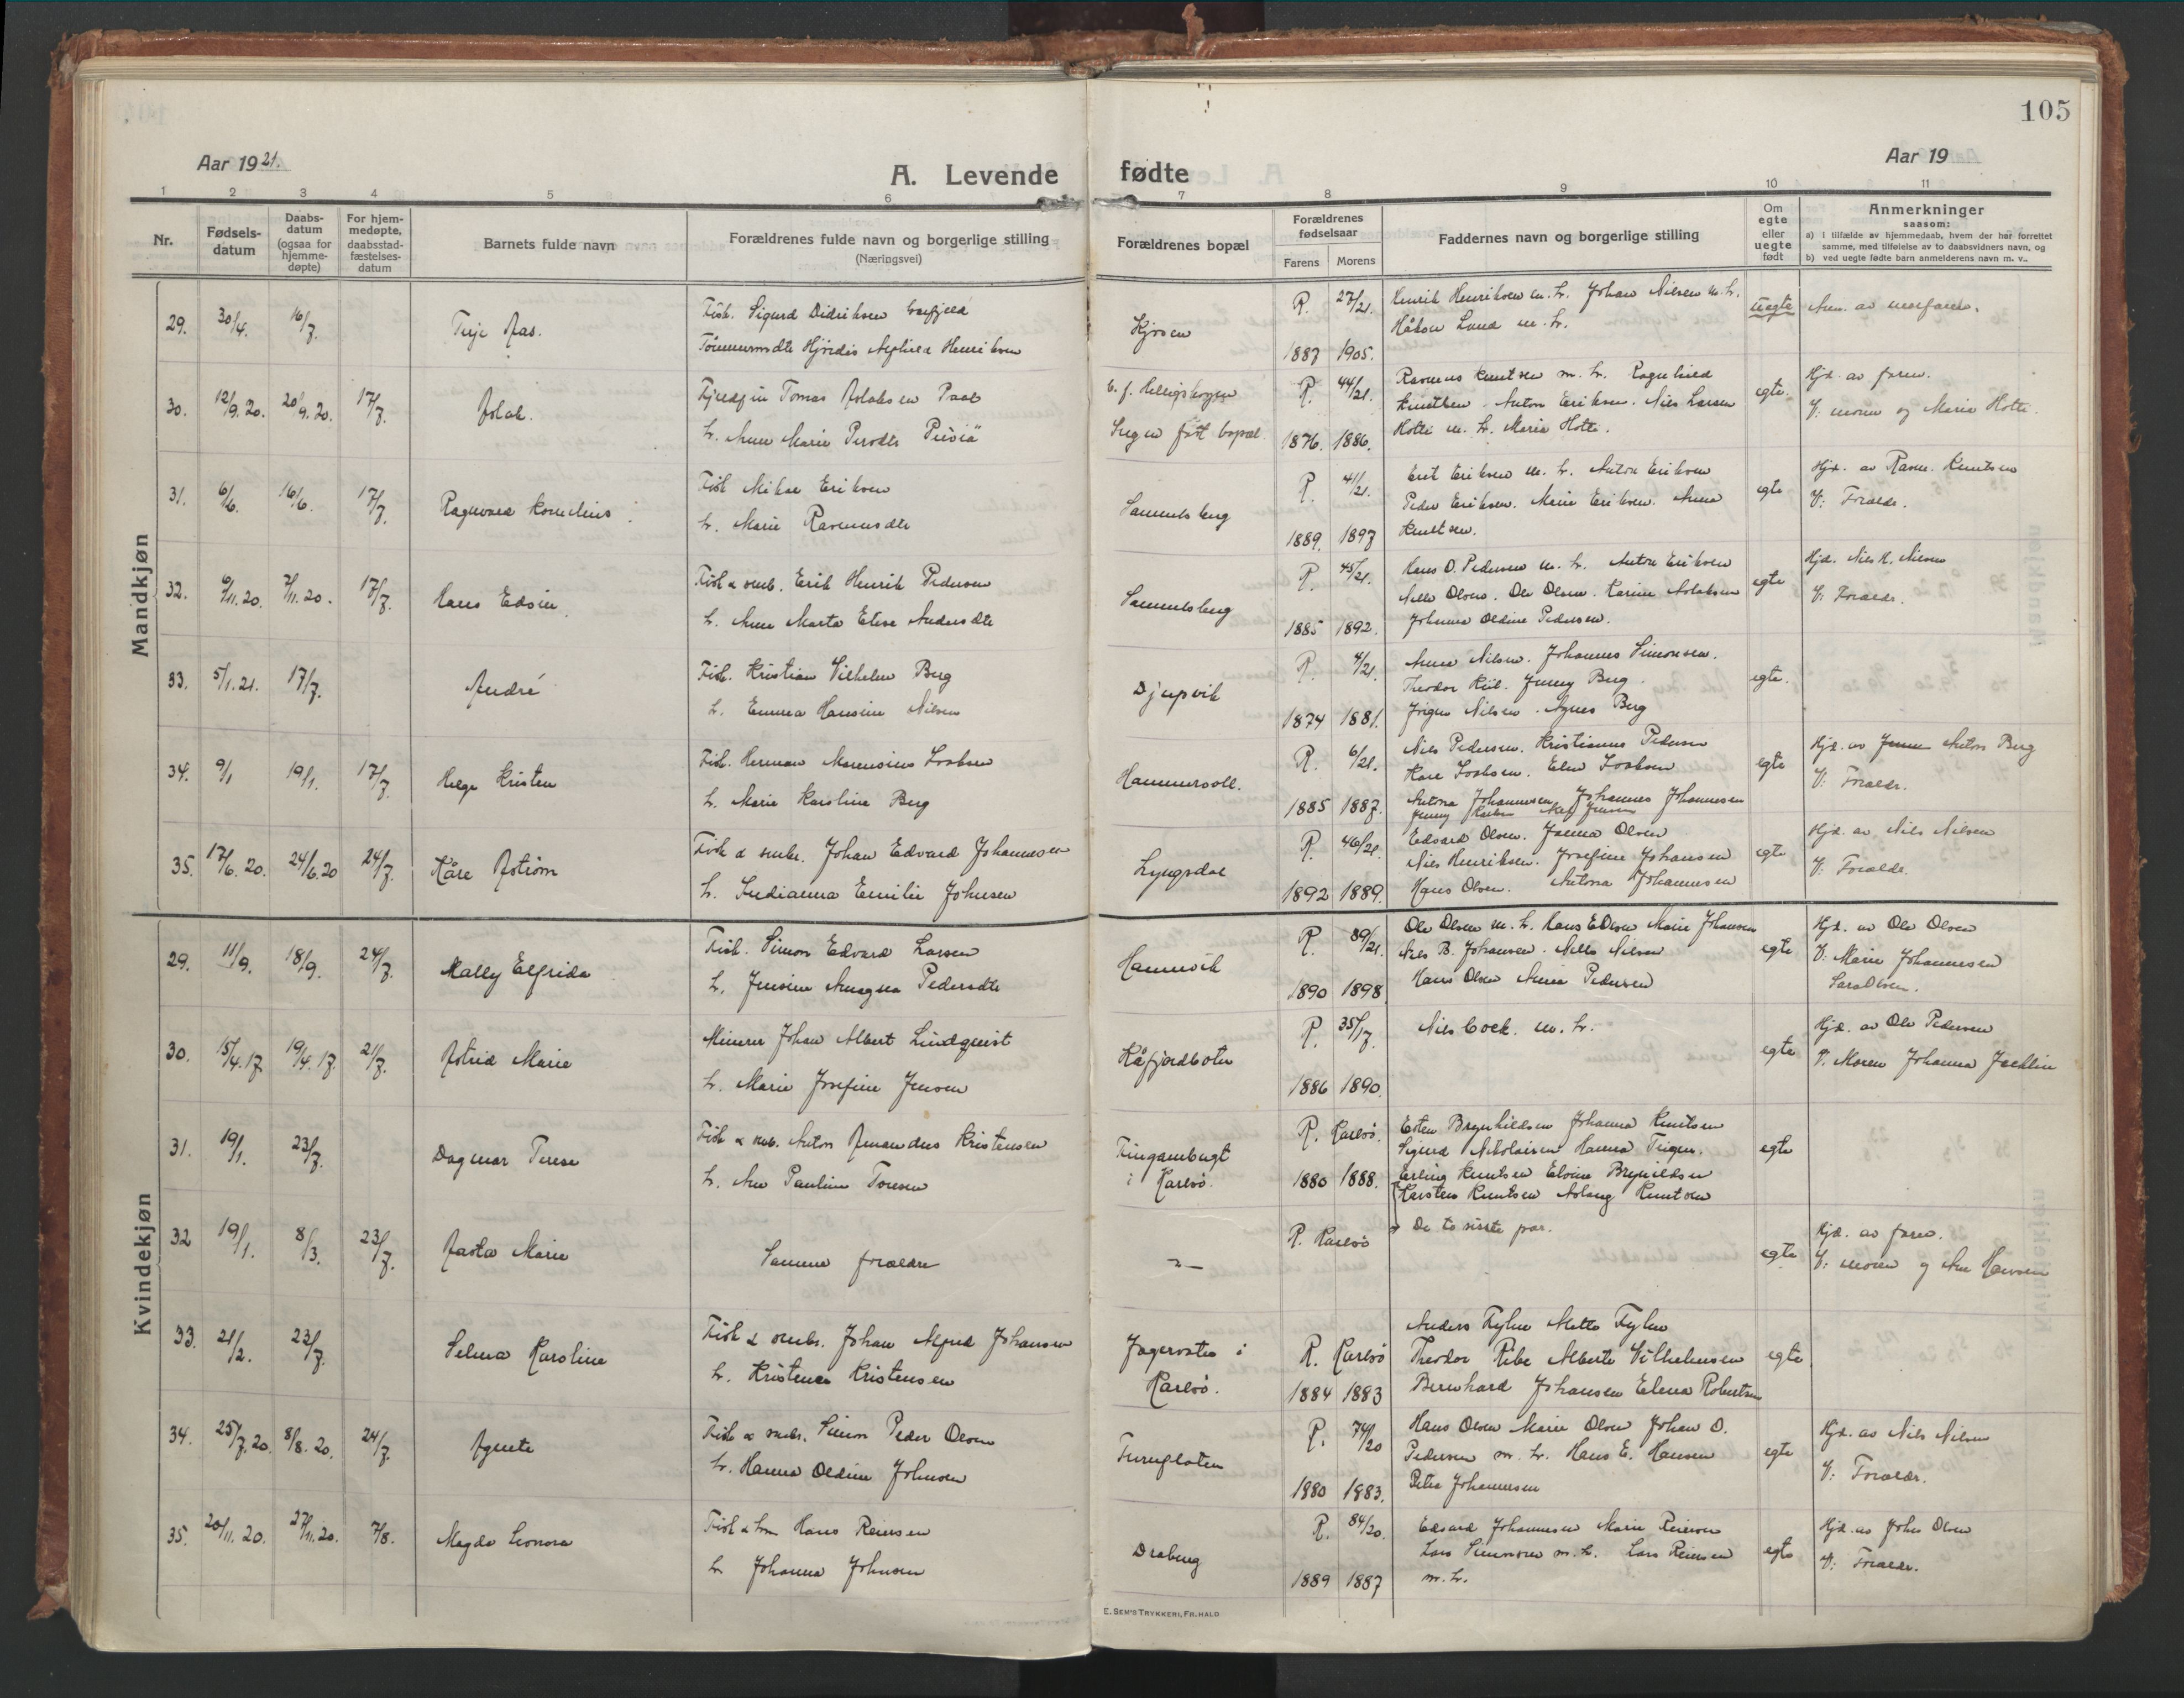 105
Aar 1921.
A. Levende fødte
Aar 19
1 2 3 4 5 6 7 8 9 10 11
Nr.
Fødsels-datum
Daabs-datum (ogsaa for hjemme-døpte)
For hjem-medøpte, daabsstad-fæstelses-datum
Barnets fulde navn
Forældrenes fulde navn og borgerlige stilling
(Næringsvei)
Forældrenes bopæl
Forældrenes fødselsaar
Farens Morens
Faddernes navn og borgerlige stilling
Om egte eller uegte født
Anmerkninger
saasom:
a) i tilfælde av hjemmedaab, hvem der har forrettet samme, med tilføielse av to daabsvidners navn, og
b) ved uegte fødte barn anmelderens navn m. v..
Mandkjøn
29. 30/4. 16/7. Terje Aas.
Fisk. Sigurd Didriksen
Hjördis Henriksen
R. 27/21.
1887 1905.
Henrik Henriksen m. h. Johan Nielsen m. h.
Håkon Lund m. h.
uegte
Anm. av morfaren.
30. 12/9. 20. 20/9. 20. 17/7. Aslak.
Tomas Aslaksen
h. Anne Marie
Ingen fast bopæl.
R. 44/21.
1876. 1886.
Rasmus Knutsen m. h. Ragnhild
Knutsen. Anton Eriksen. Nils Larsen
Hotti m. h. Maria Hotti.
egte.
Hjd. av faren.
V: moren og Maria Hotti.
31. 6/6. 16/6. 17/7. Ragnvald Kornelius.
Fisk Mikal Eriksen
h. Marie Rasmusdtr
Samuelsberg
R. 41/21.
1889. 1897
Erik Eriksen m. h. Anton Eriksen
Peder Eriksen. Marie Eriksen. Anna
Knutsen.
egte
Hjd. av Rasm. Knutsen
V: Forældr.
32. 6/11. 20. 7/11. 20. 17/7. Hans Edvin.
Fisk & smb. Erik Henrik Pedersen
h. Anne Marta Elise Andersdtr
Samuelsberg
R. 45/21.
1885 1892.
Hans O. Pedersen m. h. Anton Eriksen
Nille Olsen. Ole Olsen. Karine Aslaksen
Johanna Oldine Pedersen.
egte
Hjd. Nils H. Nilsen
V: Forældr.
33. 5/1. 21. 17/7. André
Fisk. Kristian Vilhelm Berg
h. Emma Hansine Nilsen
Djupvik
R. 4/21.
1874 1881.
Anna Nilsen. Johannes Simonsen.
Theodor Kiil. Jenny Berg.
Jørgen Nilsen. Agnes Berg
egte.
34. 9/1 19/1. 17/7. Helge Kristen
Fisk. Herman Marensius Isaksen
h. Marie Karoline Berg
Hammervoll.
R. 6/21.
1885 1887.
Nils Pedersen. Kristianna Pedersen
Kare Isaksen. Elen Isaksen
Antona Johannesen Johannes Johannesen
egte
Hjd. av Anton Berg
V: Forældr.
35. 17/6. 20. 24/6. 20 24/7. Kåre Astrøm
Fisk & smbr. Johan Edvard Johannesen
h. Indianna Emilie Johnsen
Lyngsdal
R. 46/21.
1892 1889.
Edvard Olsen. Janna Olsen
Nils Henriksen. Josefine Johansen
Hans Olsen. Antona Johannesen
egte
Hjd. av Nils Nilsen
V: Forældr.
Kvindekjøn
29. 11/9. 18/9. 24/7. Mally Elfrida
Fisk. Simon Edvard Larsen
h. Jensine Amagna Pedersdtr
Hamnvik
R. 89/21.
1890 1898
Ole Olsen m. h. Hans E Olsen Marie Johansen
Nils B. Johansen. Nille Nilsen
Hans Olsen Anna Pedersen
egte
Hjd. av Ole Olsen
V: Marie Johannesen
Sara Olsen.
30. 15/4. 17 19/4. 17 21/7. Astrid Marie
Minerer Johan Albert Lindqvist
h. Marie Josefine Jensen
Kåfjordbotn
R. 35/17.
1886 1890.
Nils Cock. m. h.
egte
Hjd. av Ole Pedersen
V. Moren Johanna
31. 19/1. 23/7. Dagmar Terese
Fisk & smb. Anton Amandus Kristensen
h. Ane Pauline Toresen
i Karlsö.
R. Karlsö.
1880 1888.
Esten Brynhildsen Johanna Knutsen
Sigurd Nikolaisen Hanna
Erling Knutsen Elvine Brynildsen
Karsten Knutsen Aslaug Knutsen
egte
32 19/1. 8/3. 23/7. Aasta Marie
Samme forældre
R. Karlsö
De to siste par.
egte
Hjd. av faren.
V: moren og Ane Hansen
33. 21/2. 23/7. Selma Karoline
Fisk & smbr. Johan Alfred Johansen
h. Kristence Kristensen
Jægervatn i
Karlsö.
R. Karlsö
1884 1883
Anders Fylun Mette Fylun
Theodor Ribe Alberte Vilhelmsen
Bernhard Johansen Elena Robertsen
egte
34. 25/7. 20. 8/8. 20. 24/7. Agnete
Fisk & smbr. Simon Peder Olsen
h. Hanna Oldine Johnsen
Furuflaten
R. 74/20
1880 1883.
Hans Olsen Marie Olsen Johan O.
Pedersen m. h. Hans E. Hansen
Petra Johannesen
egte
Hjd. av Nils Nilsen
V: Forældr.
35. 20/11. 20. 27/11. 20. 7/8. Magda Leonora
Hans Reiersen
h. Johanna Johnsen
Draberg
R. 84/20.
1889 1887
Edvard Johannesen Marie Reiersen
Lars Simonsen m. h. Lars Reiersen
m. h.
egte
Hjd. av Johs Olsen
V: Forældr.
E. SEM'S TRYKKERI, FR.HALD